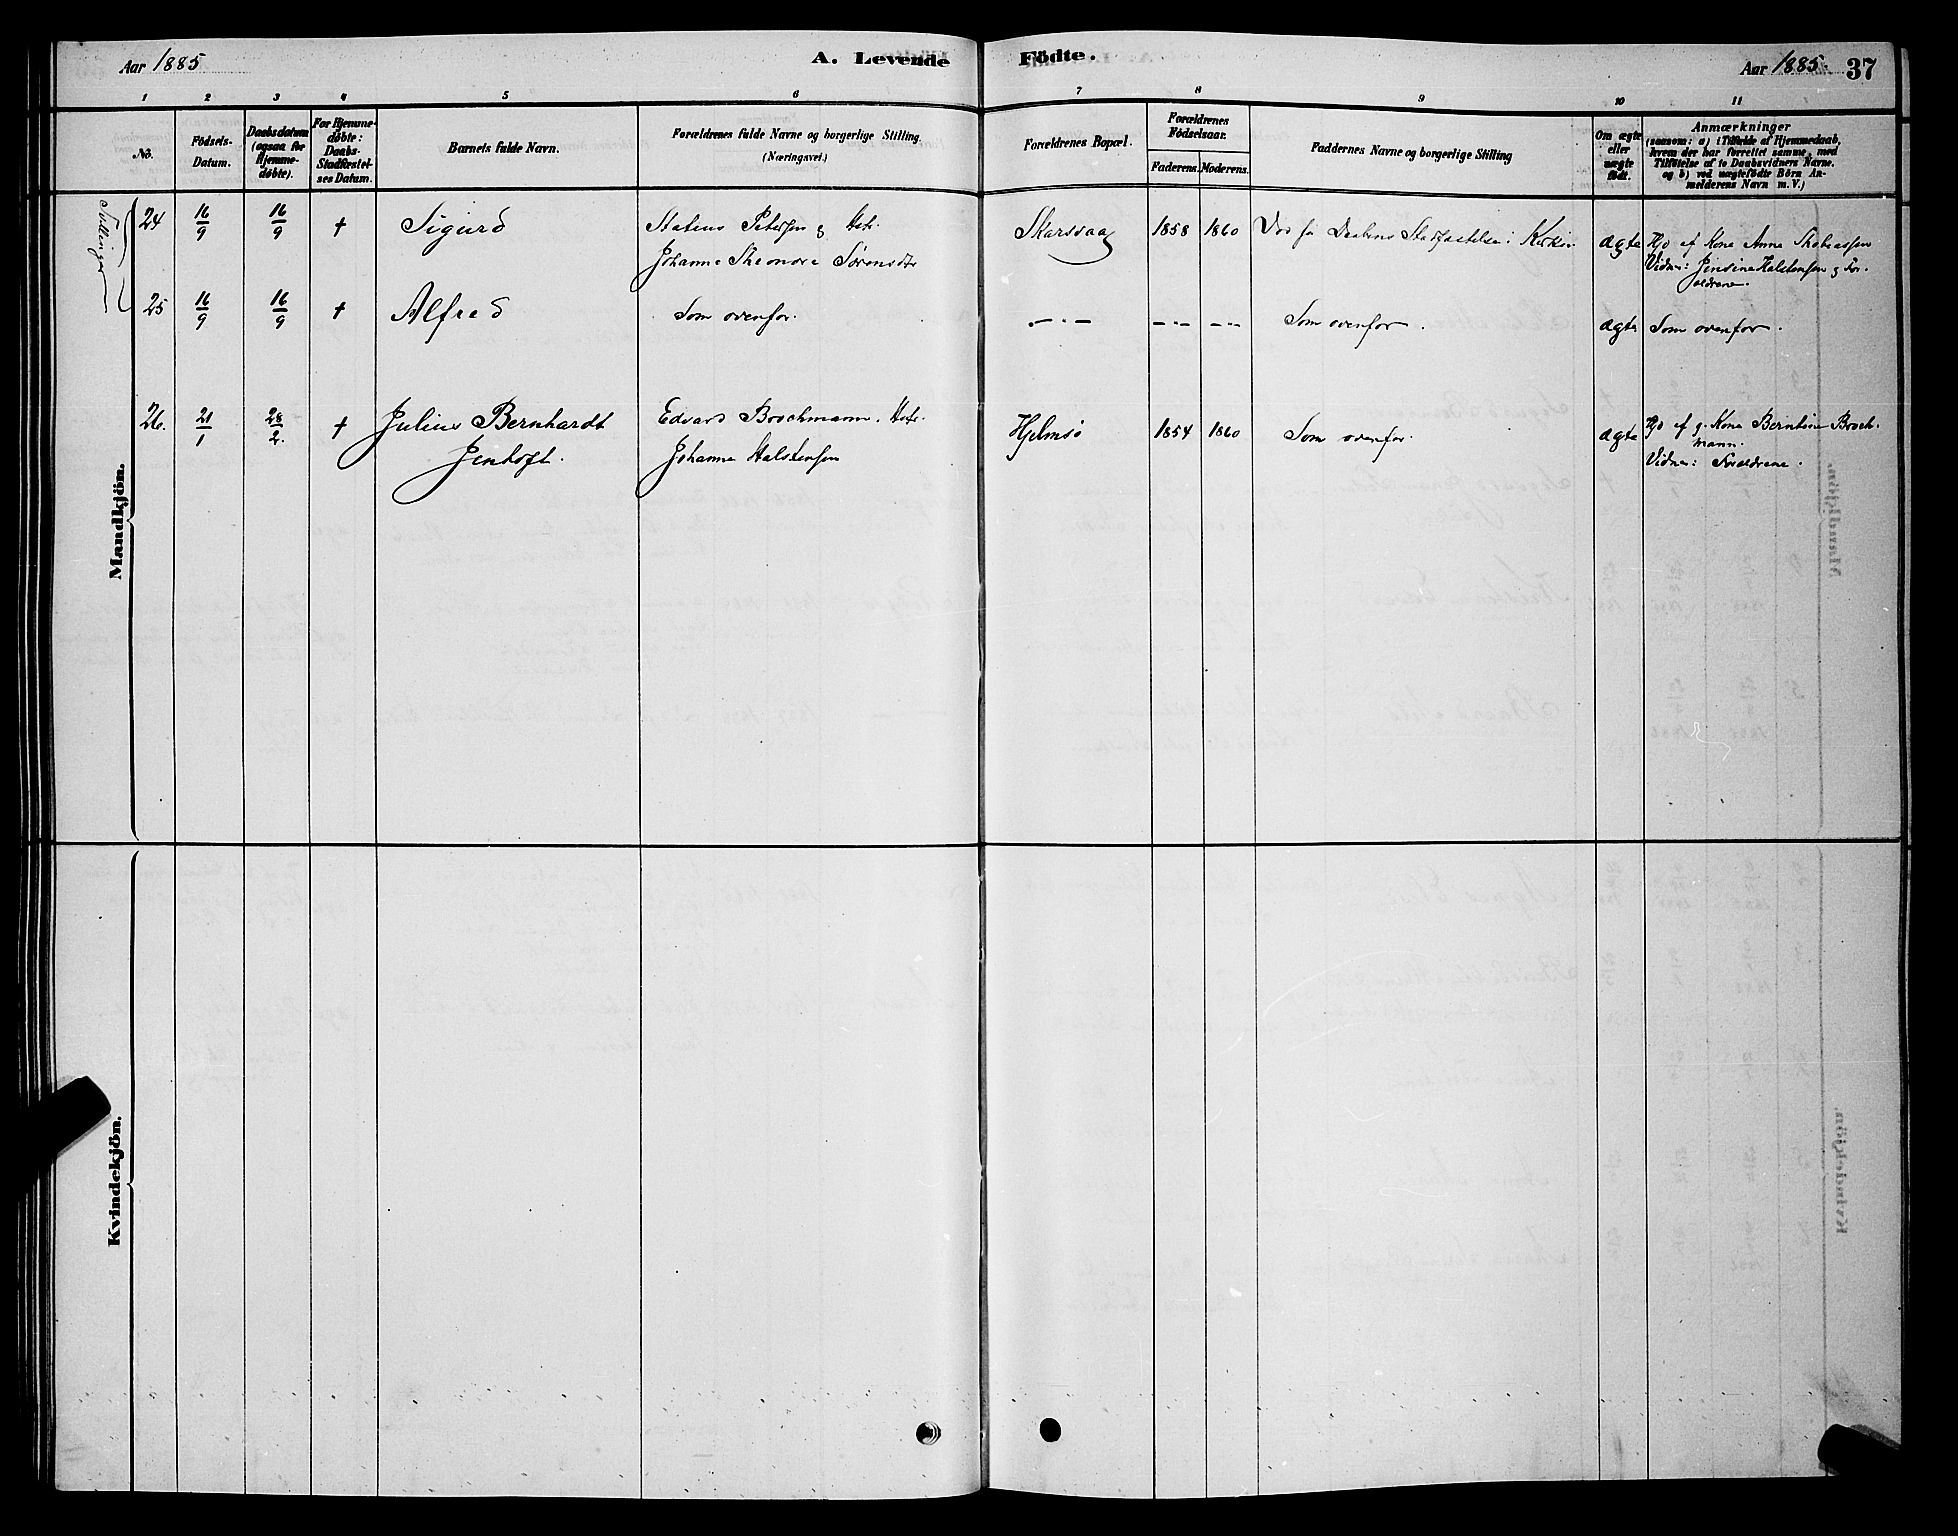 Aar 1885
A. Levende Födte.
Aar 1885. 37
1 2 3 4 5 6 7 8 9 10 11
No.
Födsels-
Datum.
Daabsdatum
(ogsaa for
Hjemme-
døbte).
For Hjemme-
døbte:
Daabs-
Stadfæstel-
ses Datum.
Barnets fulde Navn.
Forældrenes fulde Navne og borgerlige Stilling
(Næringsvei.)
Forældrenes Bopæl.
Forældrenes
Fødselsaar.
Faderens. Moderens.
Faddernes Navne og borgerlige Stilling
Om ægte
eller
uægte
født.
Anmærkninger
(saasom: a) i Tilfælde af Hjemmedaab,
hvem der har forrettet samme, med
Tilføielse af to Daabsvidners Navne.
og b) ved uægtefødte Börn An-
melderens Navn m. V.)
Mandkjön.
Tvillinger
24 16/9 16/9 † Sigurd
Petersen g
Johanna Sørensdtr
Skarsvaag 1858 1860 Ved Daabens Stadfæstelse i Kirken
ægte
Hjd af Kona Anna
Vidner: Jensine Halstensen g For-
ældrene.
25 16/9 16/9 † Alfred
Som ovenfor.
—"— —"— —"— Som ovenfor. ægte Som ovenfor.
26. 21/1 28/2. † Julius Bernhardt
Jentoft.
Edvard Brochmann.
Johanna Halstensen
Hjelmsö 1854 1860 Som ovenfor. ægte
Hjd af g. Kona Berntine Broch-
mann.
Vidner: Forældrene.
Kvindekjön.